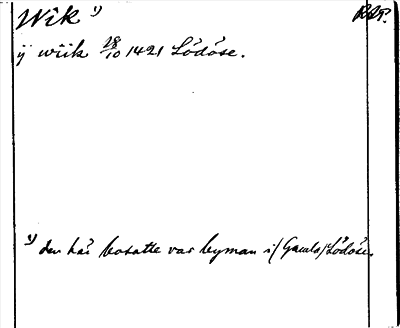 Wik 1)
ij wiik 28/10 1421 Lödöse.
1) den här bosatte var byman i (Gamla) Lödöse.